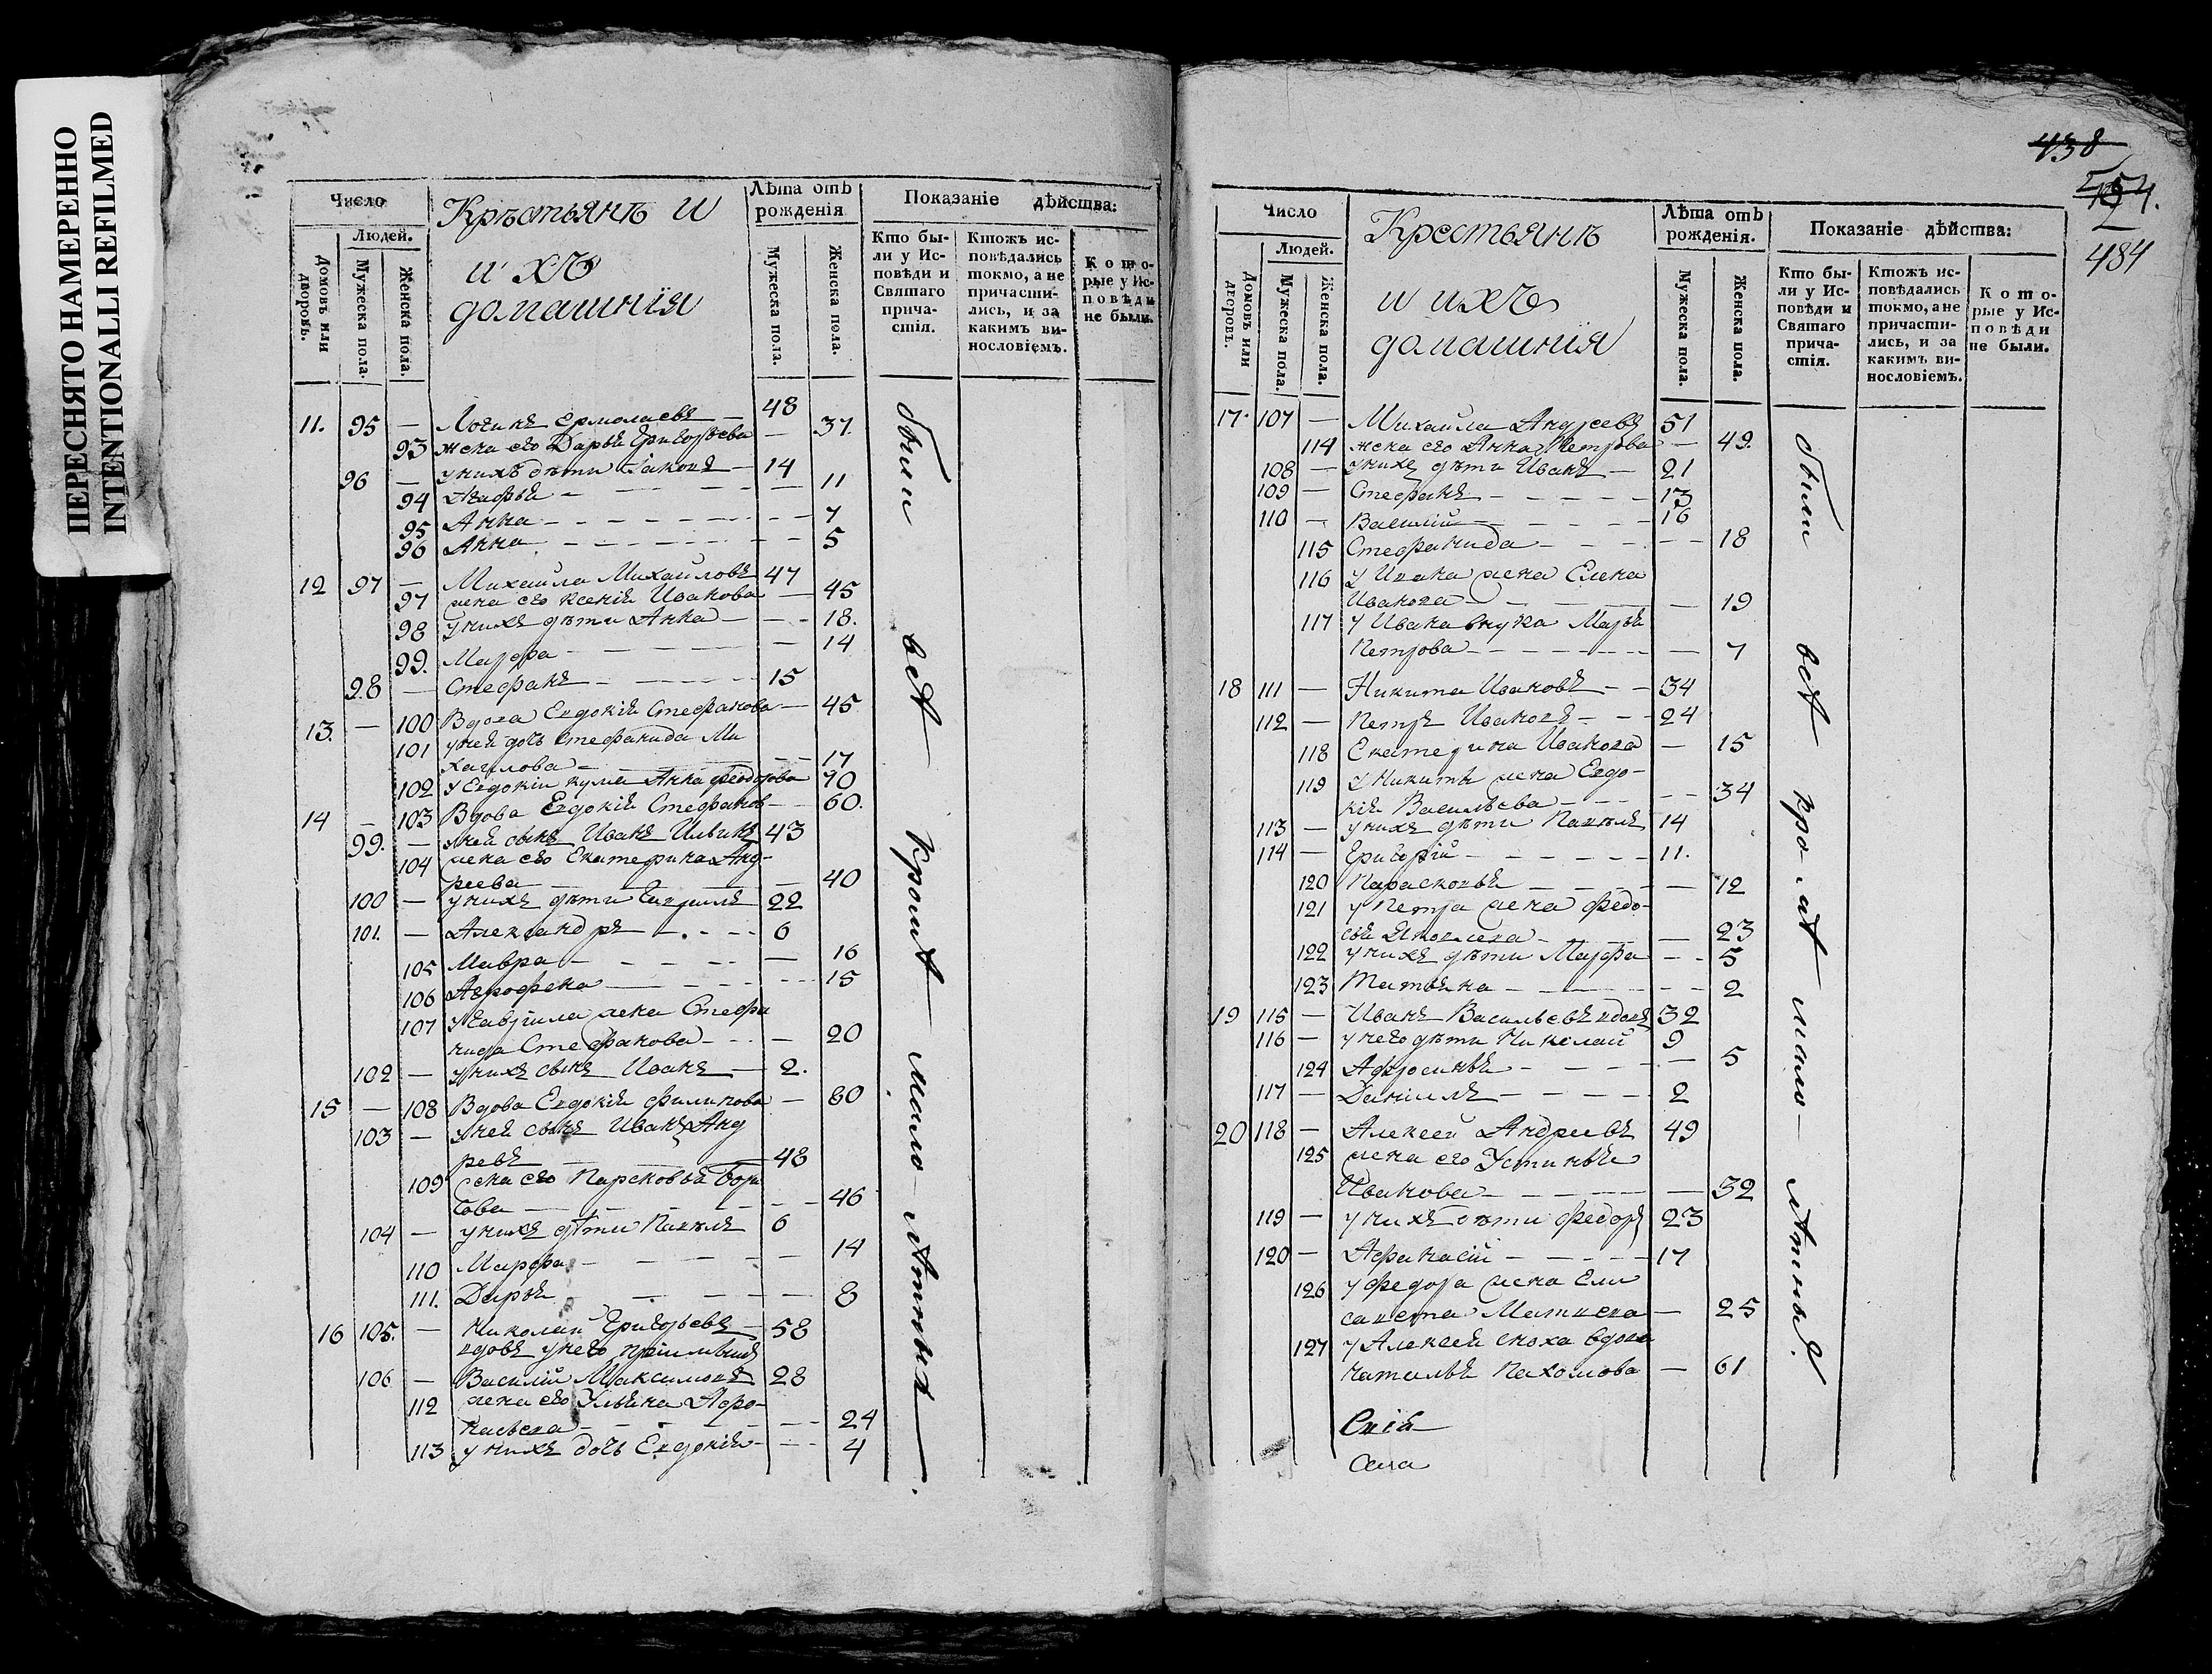 ПЕРЕСНЯТО НАМЕРЕННО
INTENTIONALLI REFILMED
Число
Людей.
Домовъ или дворовъ.
Мужеска пола.
Женска пола.
Крѣстьянъ и
ихъ
домашнія
Лѣта отъ рожденія
Мужеска пола.
Женска пола.
Показаніе дѣйства:
Кто бы-
ли у Ис-
повѣди и
Святаго
прича-
стія.
Ктожъ ис-
повѣдались
токмо, а не
причасти-
лись, и за
какимъ ви-
нословіемъ.
Кото-
рые у Ис-
повѣди
не были.
11. 95 — Логинъ Ермолаевъ — 48
93 жена его Дарья Григорьева — 37
96 — у нихъ дѣти Іаковъ — 14
94 — 11
95 Анна — 7
96 Анна — 5
12 97 — Михаила Михаиловъ 47
97 жена его Ксенія Иванова — 45
98 у нихъ дѣти Анна — 18.
99. Марфа — 14
98 — Стефанъ — 15
13. — 100 Вдова Евдокія Стефанова — 45
101 у ней дочь Стефанида Ми
хаилова — 17
102 у Евдокіи кума Анна Феодорова 70
14 — 103 Вдова Евдокія Стефанов — 60.
99. — у ней сынъ Иванъ Ильинъ 43
104 жена его Екатерина Анд-
реева — 40
100 — у нихъ дѣти Гаврилъ 22
101. — Александръ — 6
105 Мавра — 16
106 Агрофена — 15
107 у Гаврила жена Стефа
нида Стефанова — 20
102 — у нихъ сынъ Иванъ — 2.
15 — 108 Вдова Евдокія Филипова — 80
103 — у ней сынъ Иванъ Анд
ревъ — 48
109 жена его Парсковья
— 46
104 — у нихъ дѣти Павелъ 6
110 Марфа — 14
111. Дарья — 8
16 105. — Николай Григорьевъ — 58
вдовъ у него
106 — Василій Максимовъ 28
112 жена его Ульяна Афо-
насьева — 24
113 у нихъ дочь Евдокія — 4
были всѣ кромѣ мало лѣтныхъ.
438
484
Число
Людей.
Домовъ или дворовъ.
Мужеска пола.
Женска пола.
Крестьянъ
и ихъ
домашнія
Лѣта отъ рожденія.
Мужеска пола.
Женска пола.
Показаніе дѣйства:
Кто бы-
ли у Ис-
повѣди и
Святаго
прича-
стія.
Ктожъ ис-
повѣдались
токмо, а не
причасти-
лись, и за
какимъ ви-
нословіемъ.
Кото-
рые у Ис-
повѣди
не были.
17 107 — Михайла Андреевъ 51
114 жена его Анна Петрова — 49.
108 — у нихъ дѣти Иванъ — 21
109 — Стефанъ — 13
110 — Василій — 16
115 Стефанида — 18
116 у Ивана жена Елена
Иванова — 19
117 у Ивана внука Марья
Петрова — 7
18 111 — Никита Ивановъ — 34
112 — Петръ Ивановъ — 24
118 Екатерина Иванова — 15
119 у Никиты жена Евдо-
кія Васильева — 34
113 — у нихъ дѣти Павелъ 14
114 — Григорій — 11.
120 Парасковья — 12
121 у Петра жена Федо-
сья Яковлева — 23
122 у нихъ дѣти Марфа — 5
123 Татьяна — 2
19 115 — Иванъ Васильевъ вдовъ 32
116 — у него дѣти Николай 9
124 Афросинья — 5
117 — Даніилъ — 2
20 118 — Алексей Андреевъ 49
125 жена его Устинья
Иванова — 32
119 — у нихъ дѣти Федоръ 23
120 — Афанасій — 17
126 у Федора жена Ели
савета Матвеева — 25
127 у Алексея сноха вдова
Наталья Пахомова — 61
были всѣ кро мѣ мало лѣтныхъ.